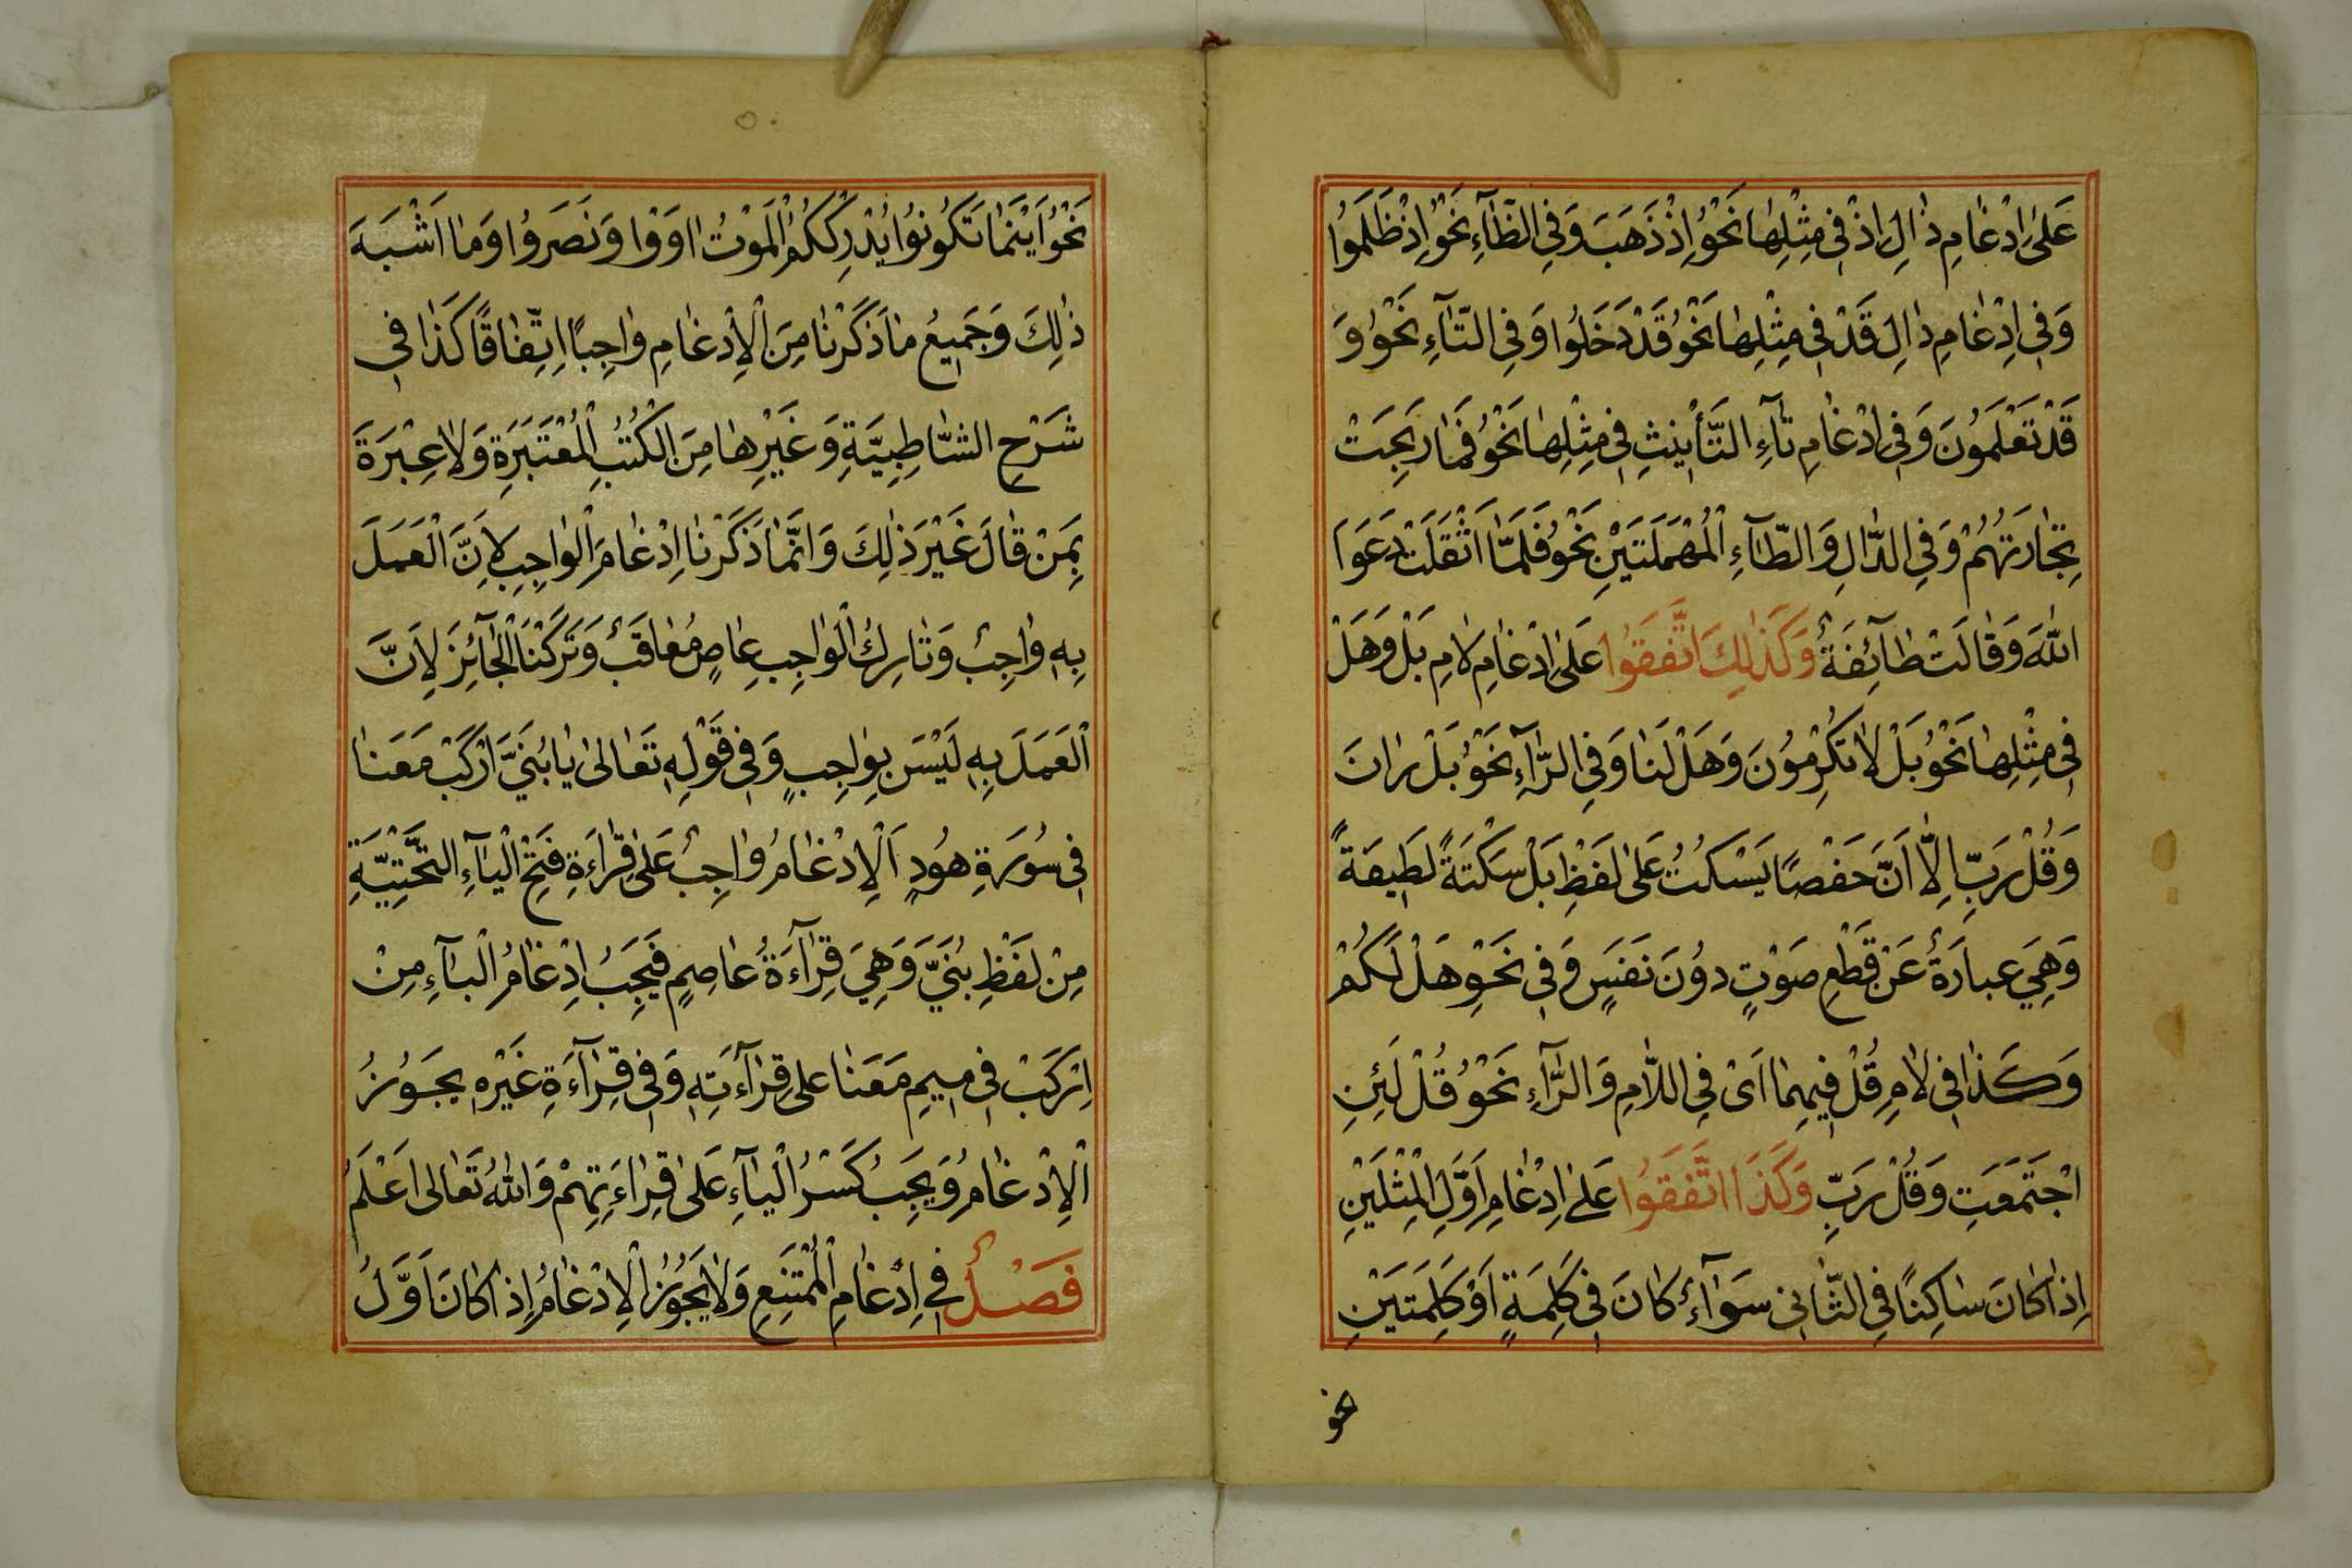 عَلىٰ اِدْغامِ ذالِ اِذْ فى مِثْلِهَا نَحْوُ اِذْ ذَهَبَ وَفِى الظّآءِ نَحْوُ اِذْ ظَلَمُوا
وَفى اِدْغامِ دالِ قَدْ فى مِثْلِهَا نَحْوُ قَدْ دَخَلُوا وَفِى التّآءِ نَحْوُ وَ
قَدْ تَعْلَمُونَ وَفى اِدْغامِ تآءِ التَّأْنيثِ فى مِثْلِهَا نَحْوُ فَمٰا رَبِحَتْ
تِجٰارَتُهُمْ وَفِى الدّالِ وَالطّآءِ الْمُهْمَلَتَيْنِ نَحْوُ فَلَمّٰا اَثْقَلَتْ دَعَوَا
اللّٰهَ وَقٰالَتْ طٰآئِفَةٌ وَكَذٰلِكَ اتَّفَقُوا عَلىٰ اِدْغامِ لامِ بَلْ وَهَلْ
فى مِثْلِهَا نَحْوُ بَلْ لاٰ تُكْرِمُونَ وَهَلْ لَنَا وَفِى الرّآءِ نَحْوُ بَلْ رٰانَ
وَقُلْ رَبِّ اِلّا اَنَّ حَفْصًا يَسْكُتُ عَلىٰ لَفْظِ بَلْ سَكْتَةً لَطيفَةً
وَهِيَ عِبارَةٌ عَنْ قَطْعِ صَوْتٍ دوُنَ نَفَسٍ وَفى نَحْوِ هَلْ لَكُمْ
وَكَذا فى لامِ قُلْ فيهِمٰا اَىْ فِى اللّامِ وَالرّآءِ نَحْوُ قُلْ لَئِنِ
اجْتَمَعَتِ وَقُلْ رَبِّ وَكَذَا اتَّفَقُوا عَلىٰ اِدْغامِ اَوَّلِ الْمِثْلَيْنِ
اِذٰا كٰانَ سٰاكِنًا فِى الثّانى سَوٰآءٌ كٰانَ فى كَلِمَةٍ اَوْ كَلِمَتَيْنِ
نحو
نَحْوُ اَيْنَمٰا تَكُونُوا يُدْرِكْكُمُ الْمَوْتُ اٰوَوْا وَنَصَرُوا وَمٰا اَشْبَهَ
ذٰلِكَ وَجَميعُ مٰا ذَكَرْنٰا مِنَ الْاِدْغٰامِ وٰاجِبًا اِتِّفٰاقًا كَذٰا فى
شَرْحِ الشّٰاطِبِيَّةِ وَغَيْرِهٰا مِنَ الْكُتُبِ الْمُعْتَبَرَةِ وَلاٰ عِبْرَةَ
بِمَنْ قٰالَ غَيْرَ ذٰلِكَ وَاِنَّمٰا ذَكَرْنٰا اِدْغٰامَ الْوٰاجِبِ لِاَنَّ الْعَمَلَ
بِهِ وٰاجِبٌ وَتٰارِكُ الْوٰاجِبِ عٰاصٍ مُعٰاقَبٌ وَتَرَكْنَا الْجٰآئِزَ لِاَنَّ
الْعَمَلَ بِهِ لَيْسَ بِوٰاجِبٍ وَفى قَوْلِهِ تَعٰالىٰ يٰا بُنَيَّ ارْكَبْ مَعَنٰا
فى سُورَةِ هُودٍ اَلْاِدْغٰامُ وٰاجِبٌ عَلىٰ قِرٰاءَةِ فَتْحِ الْيٰآءِ التَّحْتِيَّةِ
مِنْ لَفْظِ بُنَيَّ وَهِيَ قِرٰآءَةُ عٰاصِمٍ فَيَجِبُ اِدْغٰامُ الْبٰآءِ مِنْ
اِرْكَبْ فى ميمِ مَعَنٰا عَلىٰ قِرٰآءَتِهِ وَفى قِرٰآءَةِ غَيْرِهِ يَجُوزُ
الْاِدْغٰامُ وَيَجِبُ كَسْرُ الْيٰآءِ عَلىٰ قِرٰاءَتِهِمْ وَاللّٰهُ تَعٰالىٰ اَعْلَمُ
فَصْلٌ فى اِدْغٰامِ الْمُمْتَنِعِ وَلاٰ يَجُوزُ الْاِدْغٰامُ اِذٰا كٰانَ اَوَّلُ